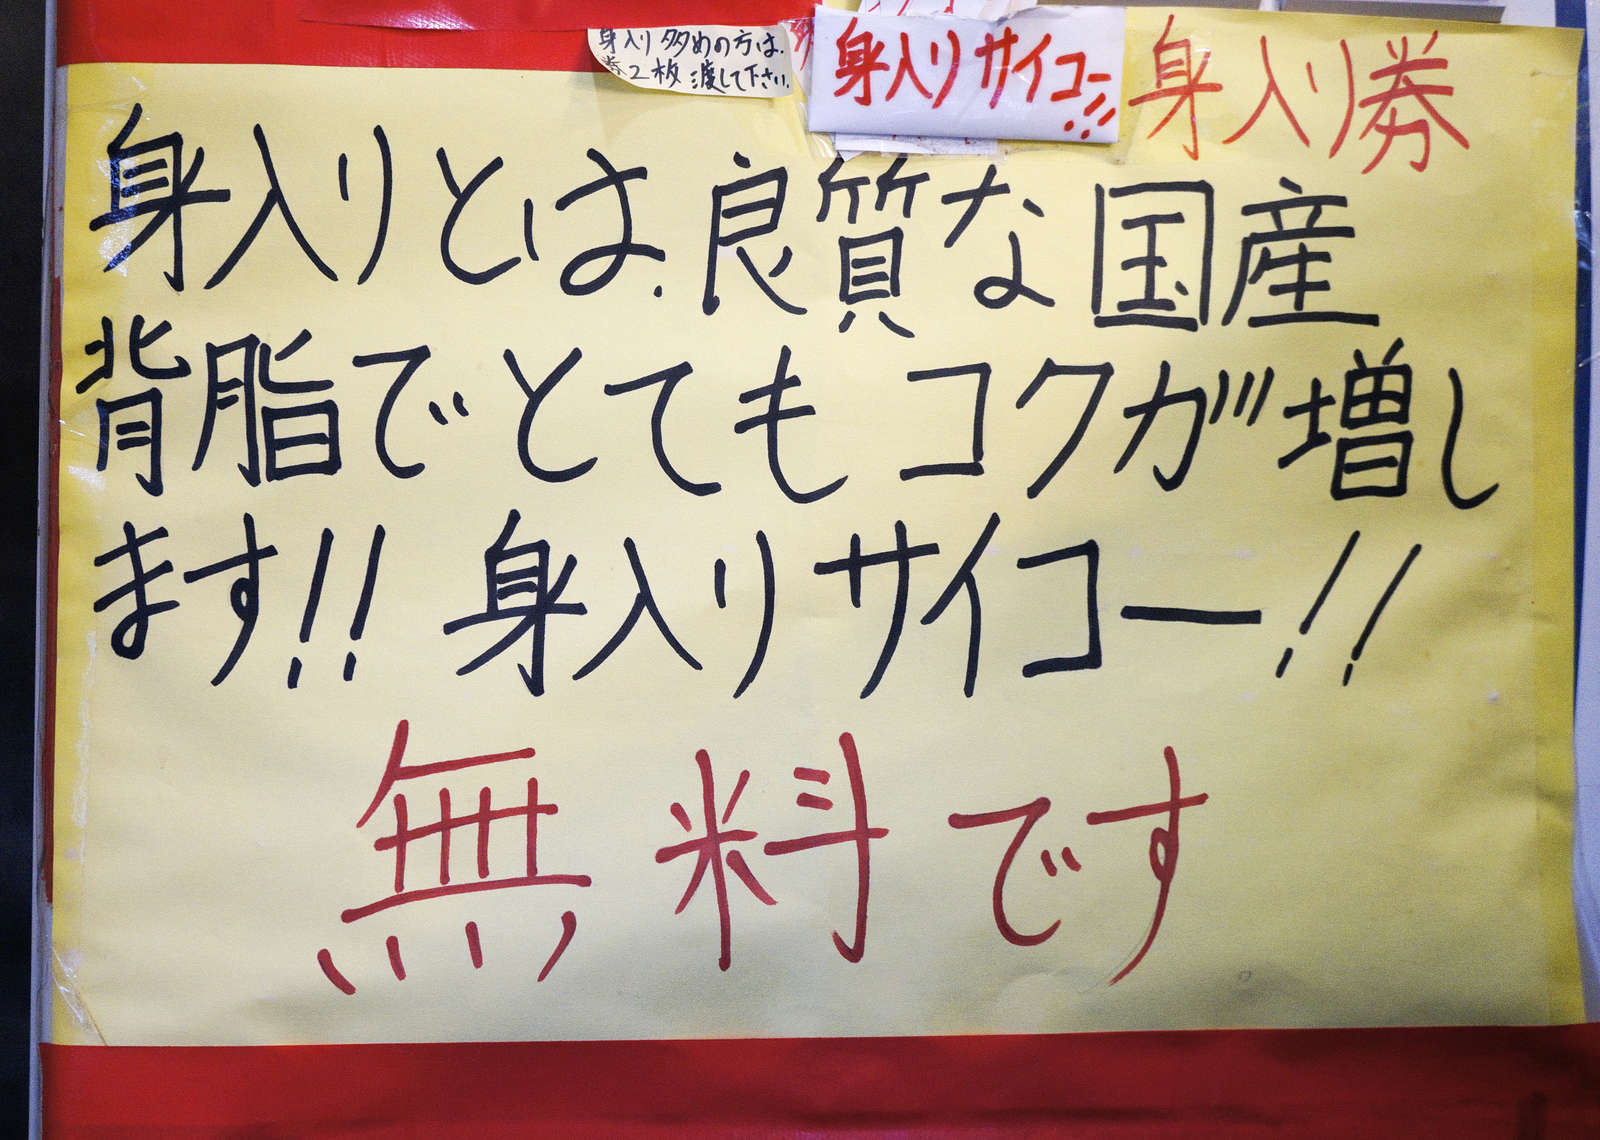 身入り多めの方は、
券2枚渡して下さい。
身入りサイコー!!!
身入り券
身入りとは、良質な国産
背脂でとてもコクが増し
ます!! 身入りサイコー!!
無料です